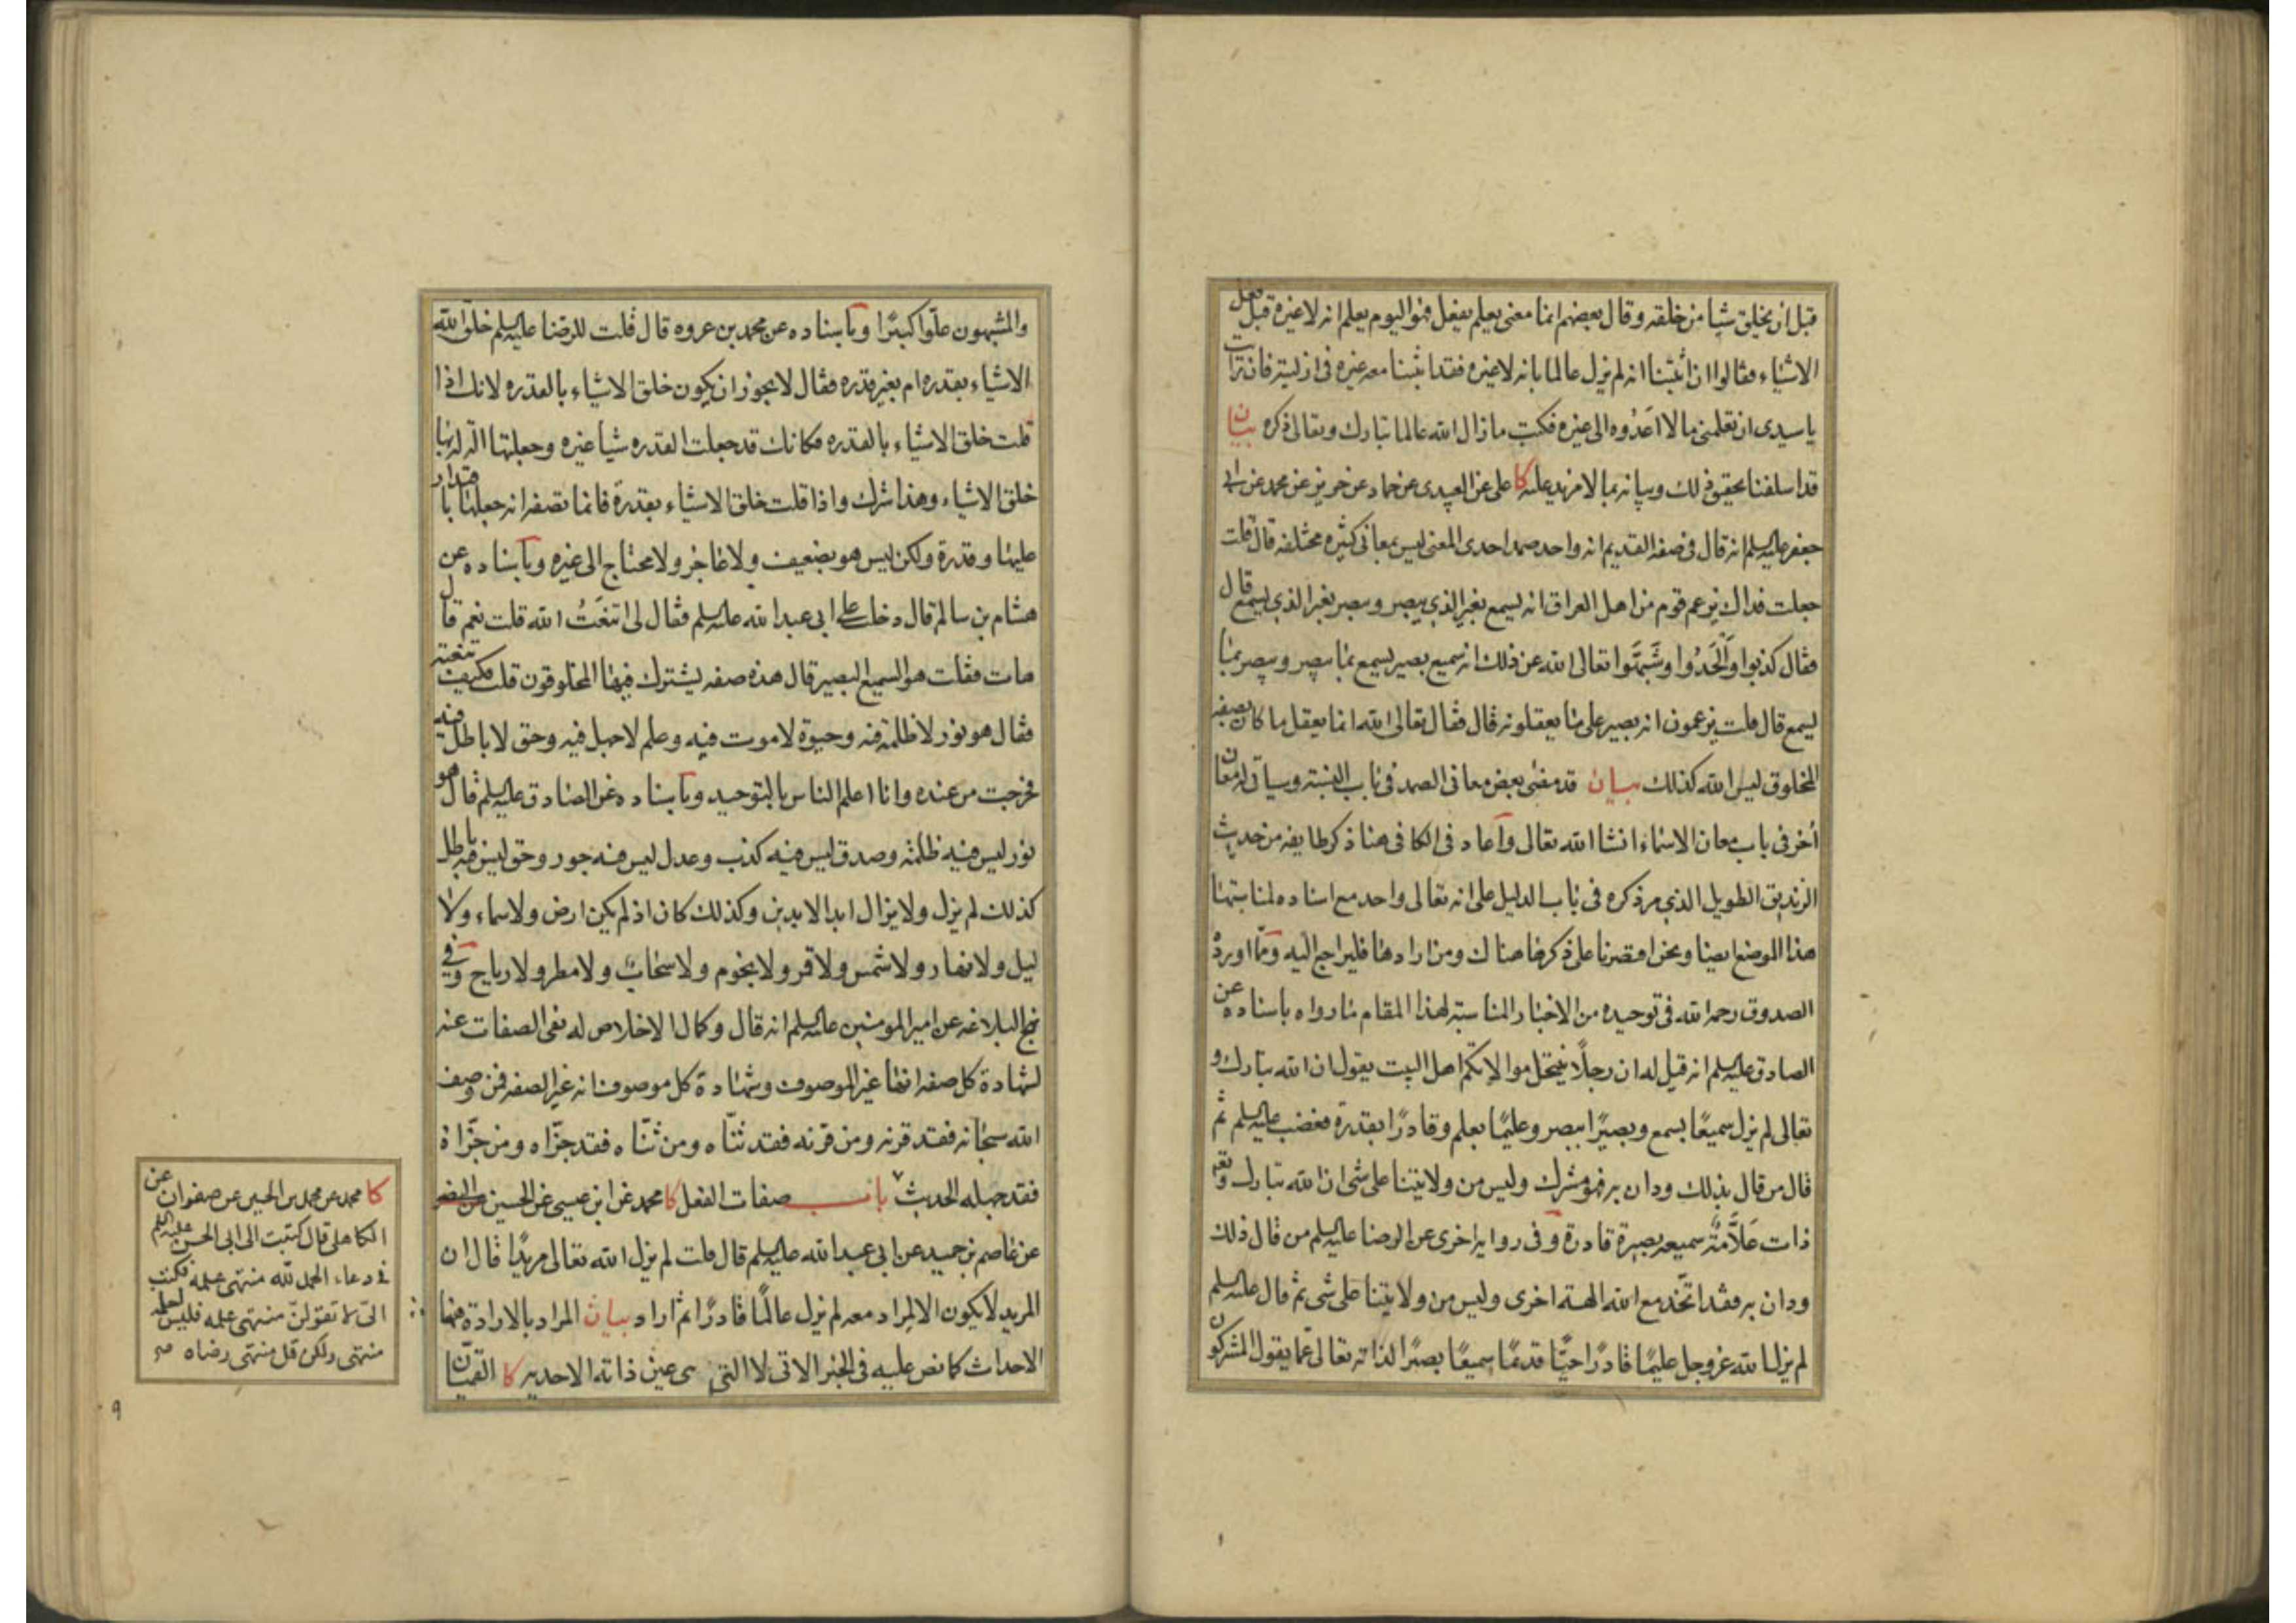 قبل ان يخلق شيا من خلقه وقال بعضهم انما معنى يعلم يفعل فهو اليوم يعلم انه لا غيره قبل فعل
الاشياء فقالوا ان اثبتنا انه لم يزل عالما بانه لا غيره فقد اثبتنا معه غيره فى ازليته فان رايت
يا سيدى ان تعلمنى ما لا اعدوه الى غيره فكتب ما زال الله عالما تبارك وتعالى ذكره بيان
قد اسلفنا تحقيق ذلك وبيانه بما لا مزيد عليه كا على عن العبيدى عن حماد عن حريز عن محمد عن ابى
جعفر عليه السلم انه قال فى صفه القديم انه واحد صمد احدى المعنى ليس بمعانى كثيره مختلفه قال قلت
جعلت فداك يزعم قوم من اهل العراق انه يسمع بغير الذي يبصر ويبصر بغير الذي يسمع قال
فقال كذبوا وَالْحَدُوا وشَبَّهَوا تعالى الله عن ذلك انه سميع بصير يسمع بما يبصر ويبصر بما
يسمع قال قلت يزعمون انه بصير على ما يعقلونه قال فقال تعالى الله انما يعقل ما كان بصفه
المخلوق ليس الله كذلك بيان قد مضى بعض معانى الصمد فى باب النسبته وسياتى له معان
أخر فى باب معان الاسماء انشا الله تعالى واعاد فى الكافى هنا ذكر طايفه من حديث
الزنديق الطويل الذي مر ذكره فى باب الدليل على انه تعالى واحد مع اسناده لمناسبتها
هذا الموضع ايضا ونحن اقتصرنا على ذكرها هناك ومن ارادها فليراجع اليه ومما اورده
الصدوق رحمه الله فى توحيده من الاخبار المناسبته لهذا المقام ما رواه باسناده عن
الصادق عليه السلم انه قيل له ان رجلاً ينتحل موالاتكم اهل البيت يقول ان الله تبارك و
تعالى لم يزل سميعًا بسمع وبصيرًا ببصر وعليمًا بعلم وقادرًا بقدرة فغضب عليه السلم ثم
قال من قال بذلك ودان به فهو مشرك وليس من ولايتنا على شى ان الله تبارك وتعه
ذات عَلاَّمَةٌ سميعه بصيرة قادرة وفى روايه اخرى عن الرضا عليه السلم من قال ذلك
ودان به فقد اتّخذ مع الله الهة اخرى وليس من ولايتنا على شى ثم قال عليه السلم
لم يزل الله عز وجل عليمًا قادرًا حيًا قديمًا سميعًا بصيرًا لذاته تعالى عمّا يقول المشركون
والمشبهون علوا كبيرًا وباسناده عن محمد بن عروه قال قلت للرضا عليه السلم خلق الله
الاشياء بقدره ام بغير قدره فقال لا يجوز ان يكون خلق الاشياء بالقدره لانك اذا
قلت خلق الاشياء بالقدره فكانك قد جعلت القدره شيا غيره وجعلتها الة له بها
خلق الاشياء وهذا شرك واذا قلت خلق الاشياء بقدرة فانما تصفه انه جعلها باقتدار
عليها وقدرة ولكن ليس هو بضعيف ولا عاجز ولا محتاج الى غيره وباسناده عن
هشام بن سالم قال دخلت على ابى عبد الله عليه السلم فقال لى اتنعَتُ الله قلت نعم قال
هات فقلت هو السميع البصير قال هذه صفه يشترك فيها المخلوقون قلت فكيف تنعته
فقال هو نور لا ظلمة فيه وحيوة لا موت فيه وعلم لا جهل فيه وحق لا باطل فيه
فخرجت من عنده وانا اعلم الناس بالتوحيد وباسناده عن الصادق عليه السلم قال هو
نور ليس فيه ظلمة وصدق ليس فيه كذب وعدل ليس فيه جور وحق ليس فيه باطل
كذلك لم يزل ولا يزال ابد الابدين وكذلك كان اذ لم يكن ارض ولا سماء ولا
ليل ولا نهار ولا شمس ولا قمر ولا نجوم ولا سحاب ولا مطر ولا رياح وفي
نهج البلاغه عن امير المومنين عليه السلم انه قال وكمال الاخلاص له نفى الصفات عنه
لشهادة كل صفه انها غير الموصوف وشهادة كل موصوف انه غير الصفه فمن وصف
الله سبحانه فقد قرنه ومن قرنه فقد ثنّاه ومن ثنّاه فقد جزّاه ومن جزّاه
فقد جهله الحديث باب صفات الفعل كا محمد عن ابن عيسى عن الحسين عن النضر
عن عاصم بن حميد عن ابى عبد الله عليه السلم قال قلت لم يزل الله تعالى مريدًا قال ان
المريد لا يكون الا لمراد معه لم يزل عالمًا قادرًا ثم اراد بيان المراد بالارادة فيها
الاحداث كما نص عليه فى الخبر الاتى لا التى هى عين ذاته الاحديه كا القميّان
كا محمد عن محمد بن الحسين عن صفوان عن
الكاهلى قال كتبت الى ابى الحسن عليه السلم
فى دعاء الحمد لله منتهى علمه فكتب
الىّ لا تقولنّ منتهى علمه فليس لعلمه
منتهى ولكن قل منتهى رضاه صح
٩